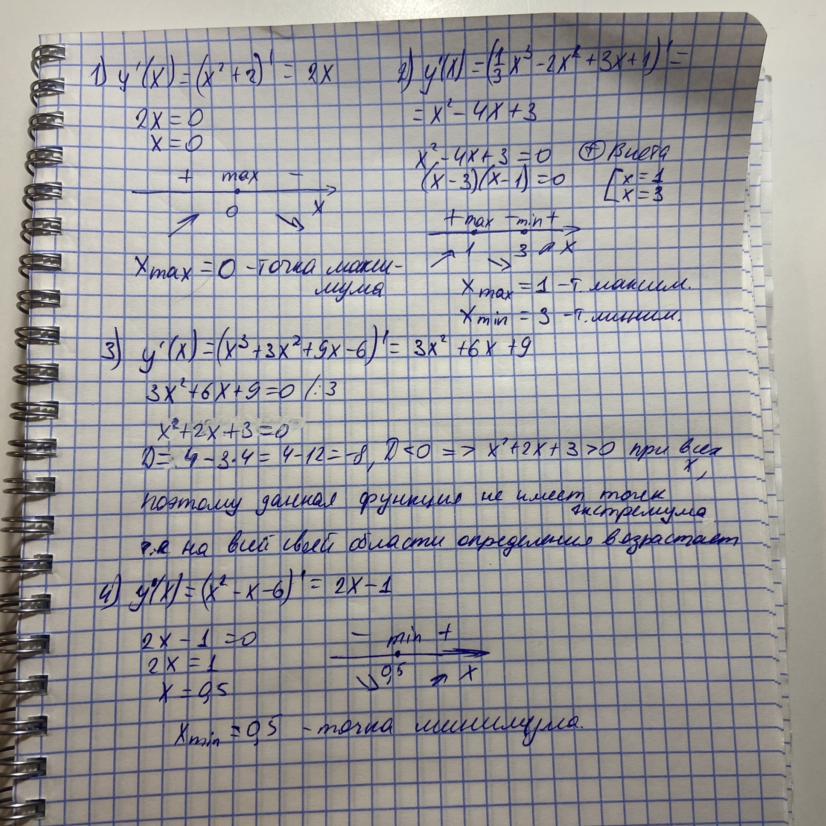 1) y'(x) = (x² + 2)' = 2x
2x = 0
x = 0
+ max -
0 x
x max = 0 - точка макси-
мума
2) y'(x) = (1/3 x³ - 2x² + 3x + 1)' =
= x² - 4x + 3
x² - 4x + 3 = 0 Виета
(x - 3)(x - 1) = 0 [x = 1
x = 3
+ max - min +
1 3 x
x max = 1 - т. максим.
x min = 3 - т. миним.
3) y'(x) = (x³ + 3x² + 9x - 6)' = 3x² + 6x + 9
3x² + 6x + 9 = 0 /:3
x² + 2x + 3 = 0
D = 4 - 3·4 = 4 - 12 = -8, D < 0 => x² + 2x + 3 > 0 при всех
x,
поэтому данная функция не имеет точек
экстремума
т.к на всей своей области определения возрастает
4) y'(x) = (x² - x - 6)' = 2x - 1
2x - 1 = 0
2x = 1
x = 0,5
- min +
0,5 x
x min = 0,5 - точка минимума.